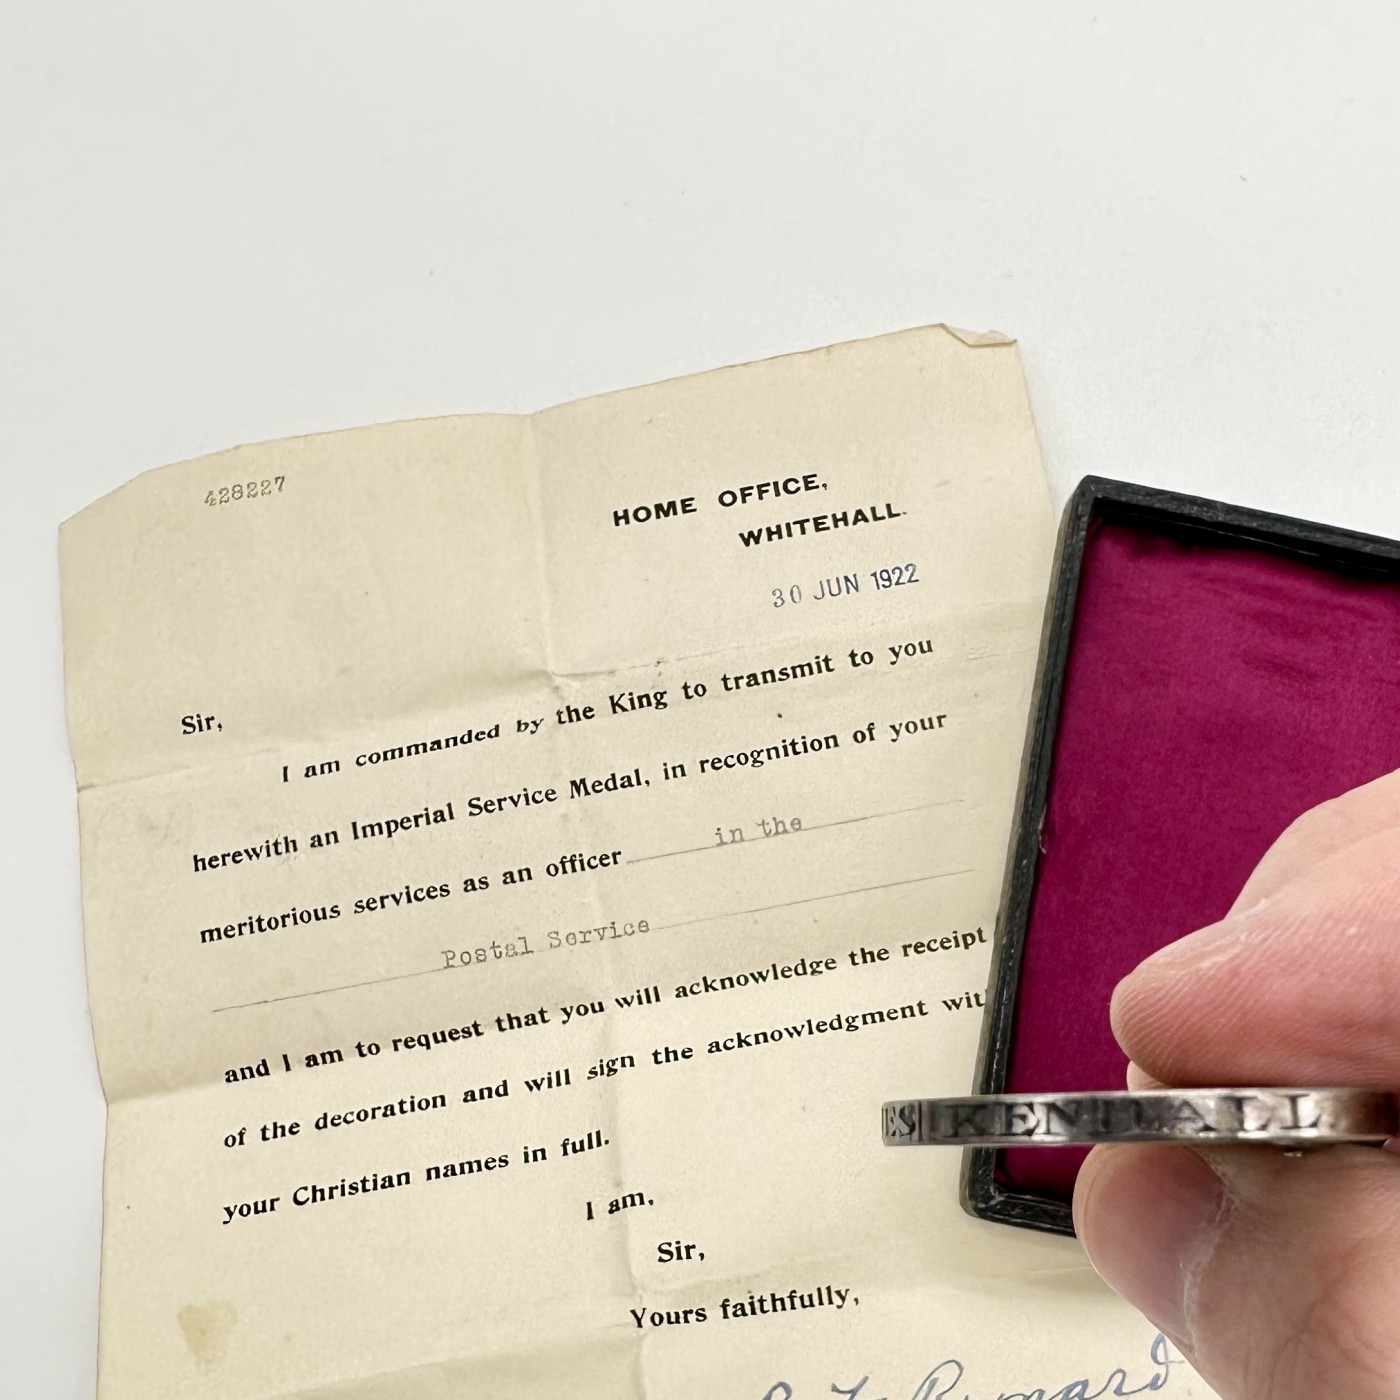 428227
HOME OFFICE,
WHITEHALL.
30 JUN 1922
Sir,
I am commanded by the King to transmit to you
herewith an Imperial Service Medal, in recognition of your
meritorious services as an officer in the
Postal Service
and I am to request that you will acknowledge the receipt
of the decoration and will sign the acknowledgment
your Christian names in full.
I am,
Sir,
Yours faithfully,
KENDALL